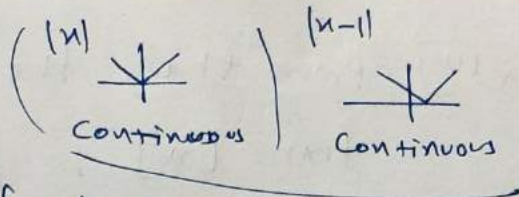 |x|
|x-1|
Continuous
Continuous